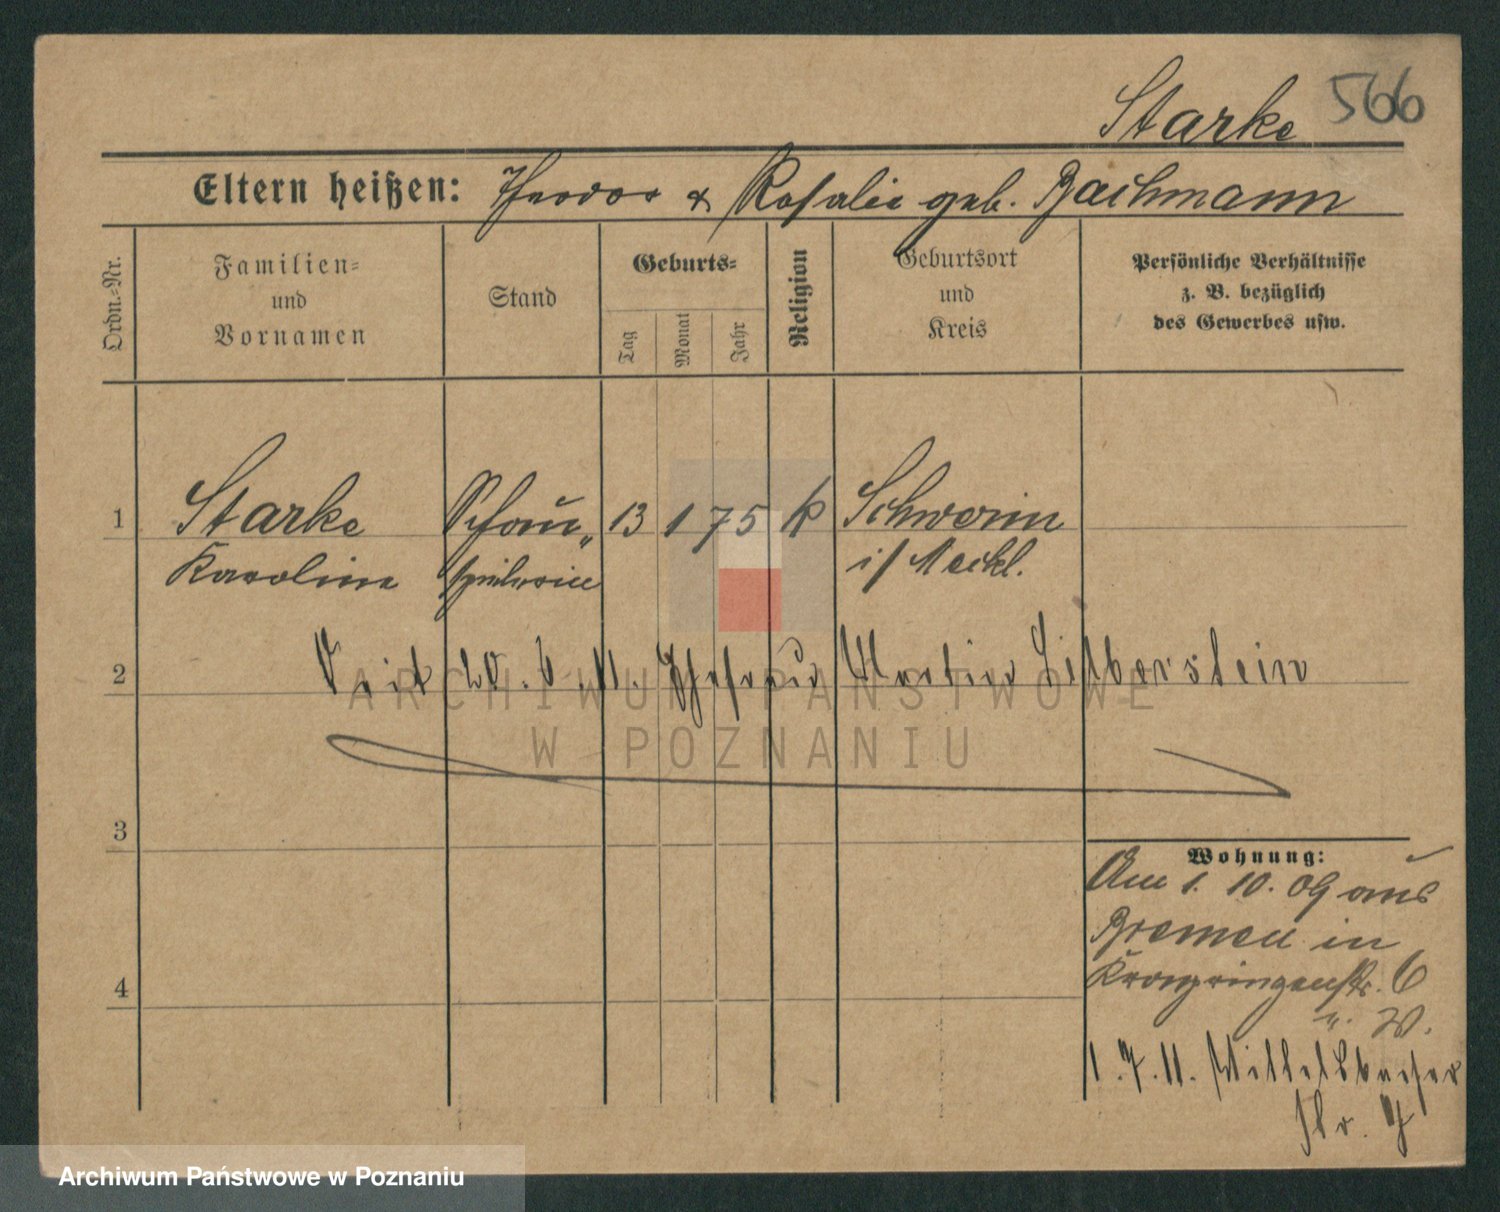 Starke 566
Eltern heißen: Theodor & Rosalie geb. Bachmann
Ordn.-Nr.
Familien-
und
Vornamen
Stand
Geburts-
Tag
Monat
Jahr
Religion
Geburtsort
und
Kreis
Persönliche Verhältnisse
z. B. bezüglich
des Gewerbes usw.
1 Starke Schau„ 13 1 75 k Schwerin
Karoline spielerin i/ Meckl.
2 Seit 20. 6. 11. Ehefrau Martin Silberstein
ARCHIWUM PAŃSTWOWE
W POZNANIU
3
Wohnung:
Am 1. 10. 09 aus
Bremen in
Kronprinzenstr. 6
4
1. 7. 11.
Str. 7
Archiwum Państwowe w Poznaniu